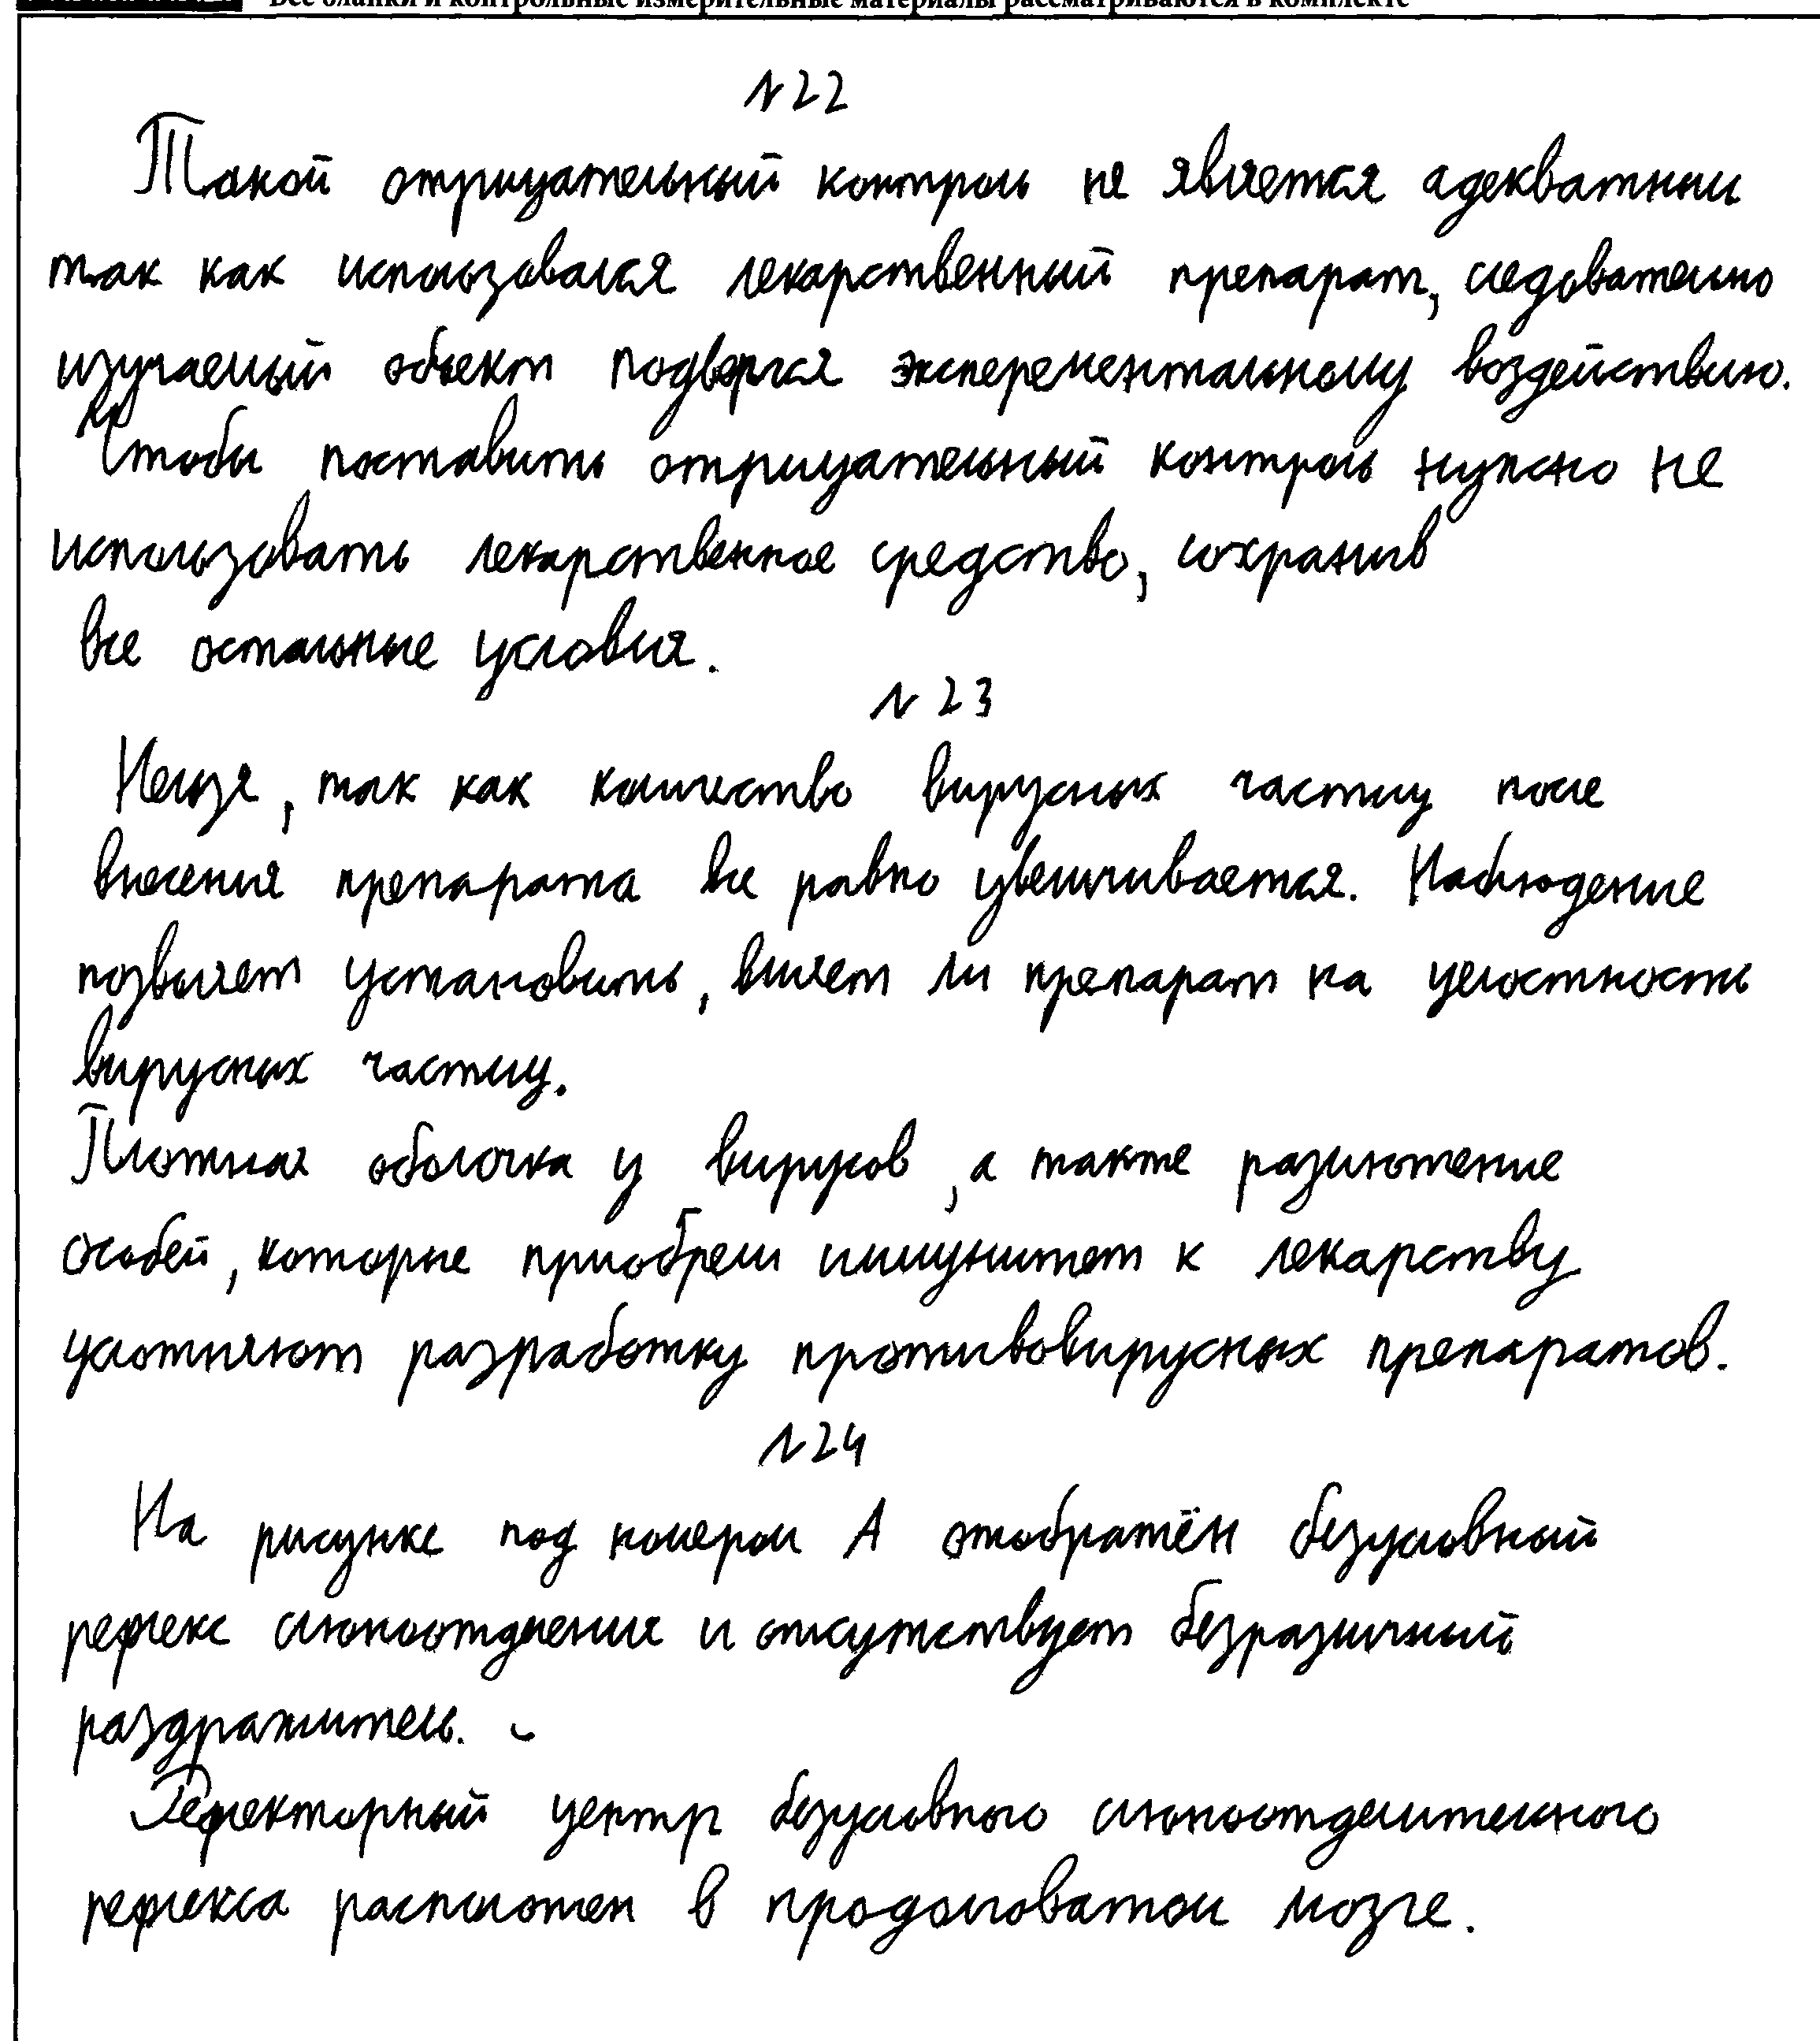 Все бланки и контрольные измерительные материалы рассматриваются в комплекте
№22
Такой отрицательный контроль не является адекватным
так как использовался лекарственный препарат, следовательно
изучаемый объект подвергся эксперементальному воздействию.
Чтобы поставить отрицательный контроль нужно не
использовать лекарственное средство, сохранив
все остальные условия.
№23
Нельзя, так как количество вирусных частиц после
внесения препарата все равно увеличивается. Наблюдение
позволяет установить, влияет ли препарат на целостность
вирусных частиц.
Плотная оболочка у вирусов, а также размножение
особей, которые приобрели иммунитет к лекарству
усложняют разработку противовирусных препаратов.
№24
На рисунке под номером А отображён безусловный
рефлекс слюноотделения и отсутствует безразличный
раздражитель.
Рефлекторный центр безусловного слюноотделительного
рефлекса расположен в продолговатом мозге.